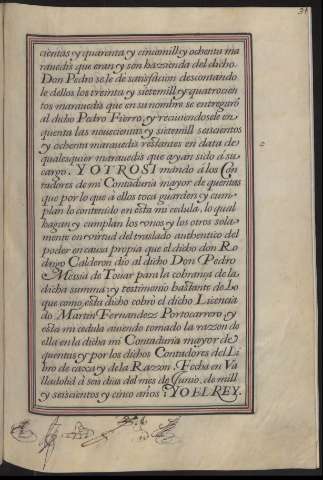 31
cientas y quarenta y cincomill y ochenta ma
rauedis que eran y son hazienda del dicho.
Don Pedro se le de satisfacion descontando
le dellos los treinta y sietemill y quatrocien
tos marauedis que en su nombre se entregarō
al dicho Pedro Fierro, y reciuiendosele en
quenta las novecientas y sietemill seiscientos
y ochenta marauedis restantes en data de
qualesquier marauedis que ayan sido á su
cargo. Y OTROSI mando á los Con
tadores de mi Contaduria mayor de quentas
que por lo que á ellos toca guarden y cum
plan lo contenido en esta mi cedula, lo qual
hagan y cumplan los vnos y los otros sola
mente en virtud del traslado authentico del
poder en causa propia que el dicho don Ro
drigo Calderon dio al dicho Don Pedro
Messia de Touar para la cobrança de la
dicha summa, y testimonio bastante de lo
que como esta dicho cobró el dicho Licencia
do Martin Fernandez Portocarrero, y
esta mi cedula auiendo tomado la razon de
ella en la dicha mi Contaduria mayor de
quentas y por los dichos Contadores del Li
bro de caxa y de la Razon. Fecha en Va
lladolid á seis dias del mes de Junio, de mill
y seiscientos y cinco años; YO EL REY.